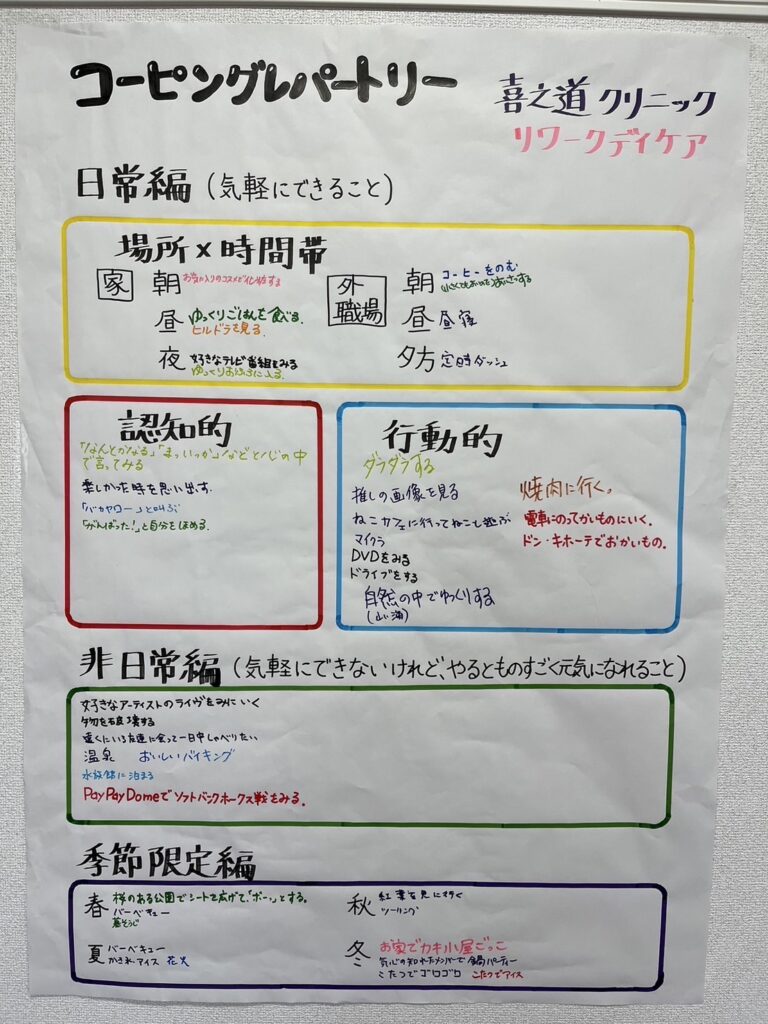 コーピングレパートリー
喜之道クリニック
リワークデイケア
日常編(気軽にできること)
場所×時間帯
家
朝 お気に入りのコスメで化粧する
昼 ゆっくりごはんを食べる.
ヒルドラを見る.
夜 好きなテレビ番組をみる
ゆっくりおふろに入る.
外
職場
朝 コーヒーをのむ
(小さくてもおいいので)あいさつする
昼 昼寝
夕方 定時ダッシュ
認知的
「なんとかなる」「まっいっか」などと心の中
で言ってみる
楽しかった時を思い出す.
「バカヤロー」と叫ぶ
「がんばった!」と自分をほめる.
行動的
ダラダラする
推しの画像を見る
ねこカフェに行ってねこと遊ぶ
マイクラ
DVDをみる
ドライブをする
自然の中でゆっくりする
(山、海)
焼肉に行く。
電車にのってかいものにいく。
ドン・キホーテでおかいもの。
非日常編(気軽にできないけれど、やるとものすごく元気になれること)
好きなアーティストのライヴをみにいく
物を破壊する
遠くにいる友達に会って一日中しゃべりたい
温泉 おいしいバイキング
水族館に泊まる
PayPayDomeでソフトバンクホークス戦をみる.
季節限定編
春 桜のある公園でシートを広げて、「ボーッ」とする。
バーベキュー
墓そうじ
夏 バーベキュー
かき氷・アイス 花火
秋 紅葉を見に行く
ツーリング
冬 お家でカキ小屋ごっこ
気心の知れたメンバーで鍋パーティー
こたつでゴロゴロ こたつでアイス